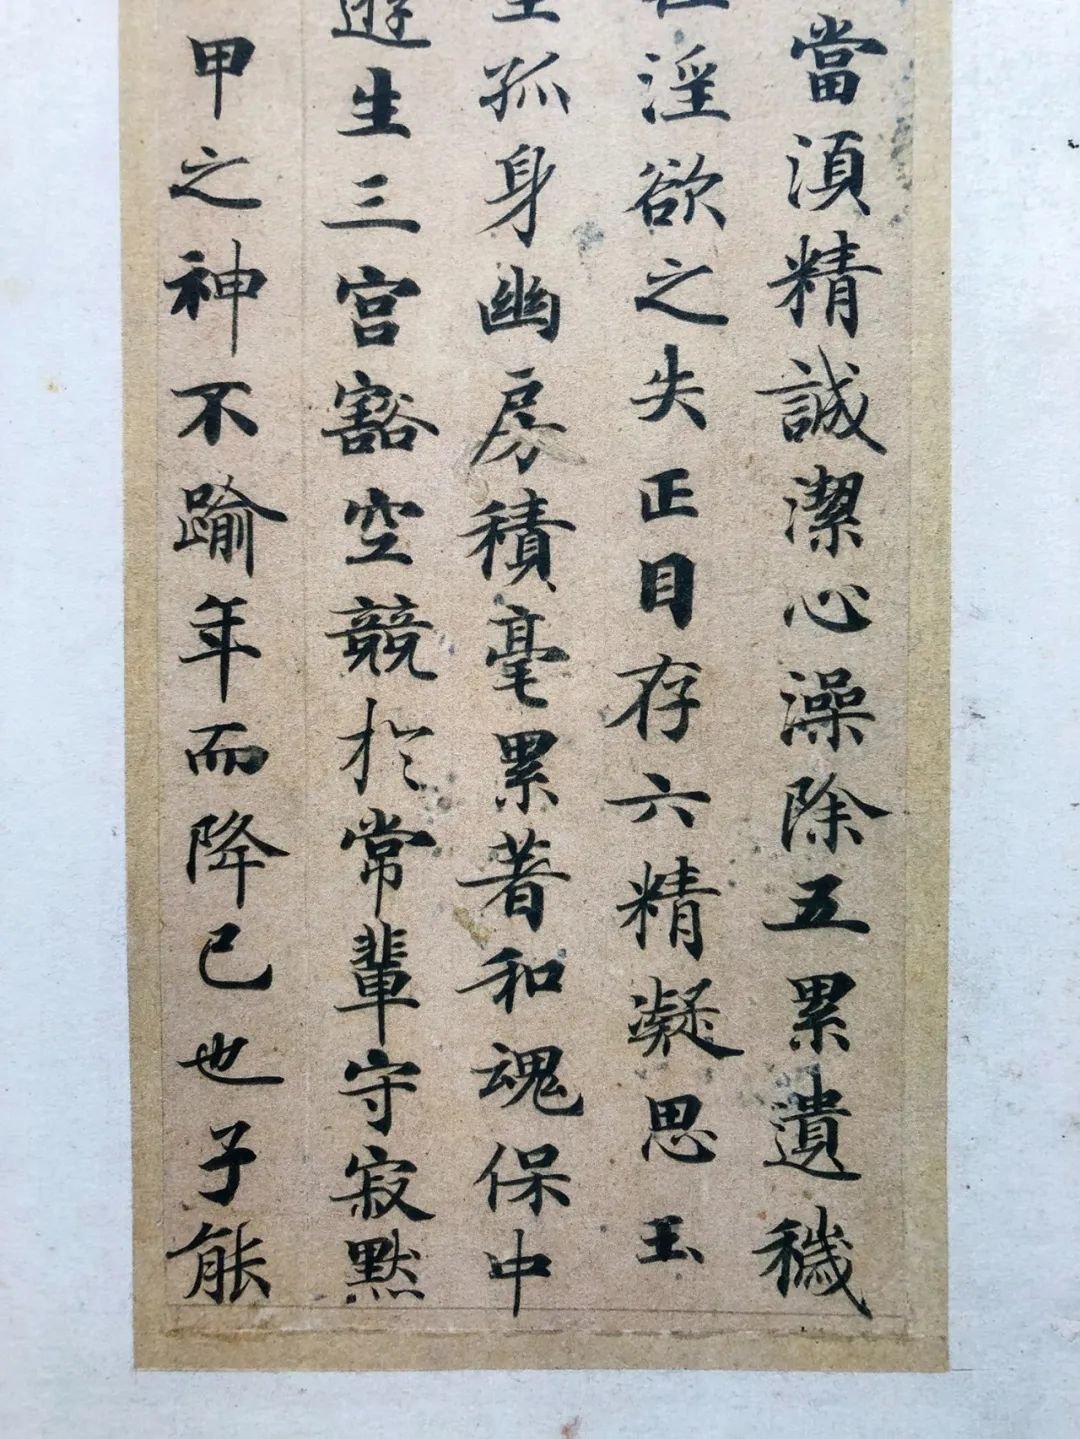 當須精誠潔心澡除五累遺穢
淫欲之失正目存六精凝思玉
孤身幽房積毫累著和魂保中
遊生三宮豁空競於常輩守寂默
甲之神不踰年而降已也子能